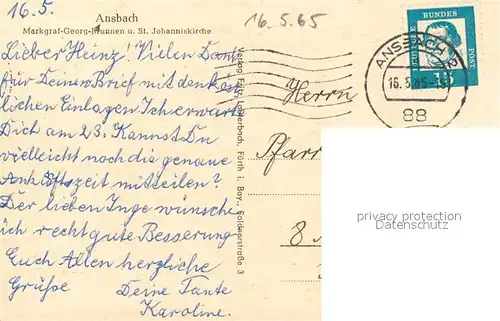 16.5.
Ansbach
Markgraf-Georg-Brunnen u. St. Johanniskirche
16.5.65
Lieber Heinz! Vielen Dank
für Deinen Brief mit den köst
lichen Einlagen. Ich erwarte
Dich am 23. Kannst Du
vielleicht noch die genaue
Ankunftszeit mitteilen?
Der lieben Inge wünsche
ich recht gute Besserung
Euch Allen herzliche
Grüße Deine Tante
Karoline.
Fürth i. Bay.,
DEUTSCHE BUNDES POST
15
ANSBACH 2
16.5.65
88
Herrn
Pfarr
8
privacy protection
Datenschutz